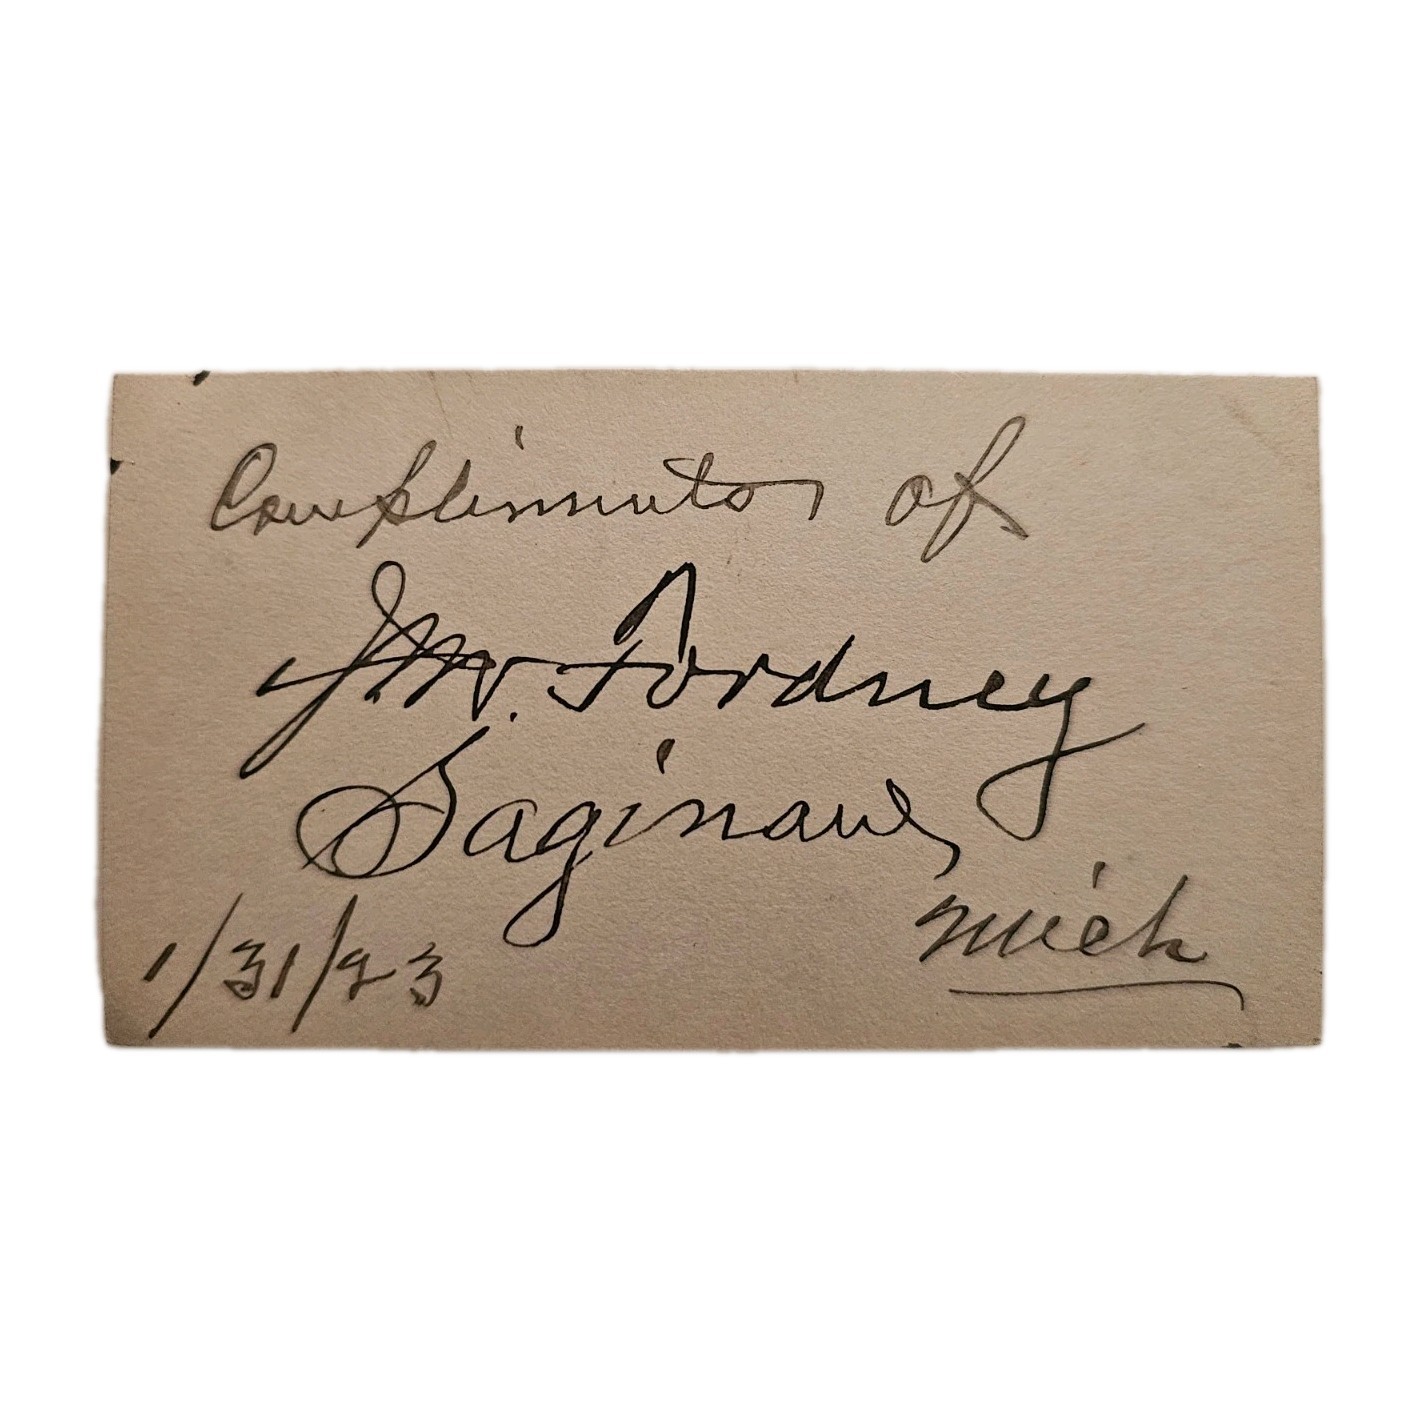 Compliments of
J.W. Fordney
Saginaw,
Mich
1/31/23